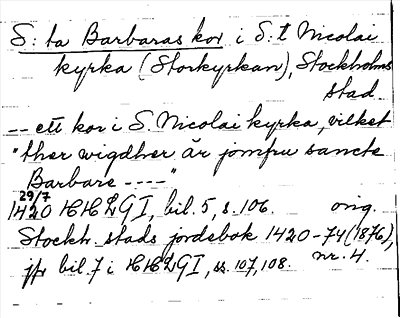 S:ta Barbaras kor i S:t Nicolai
kyrka (Storkyrkan), Stockholms
stad.
-- ett kor i S. Nicolai kyrka, vilket
"ther wigdher är jomfru sancte
Barbare ----"
29/7
1420 HHLG I, bil. 5, s. 106. orig.
Stockh. stads jordebok 1420-74 (1876),
jfr bil. 7 i HHLG I, ss. 107, 108. nr. 4.